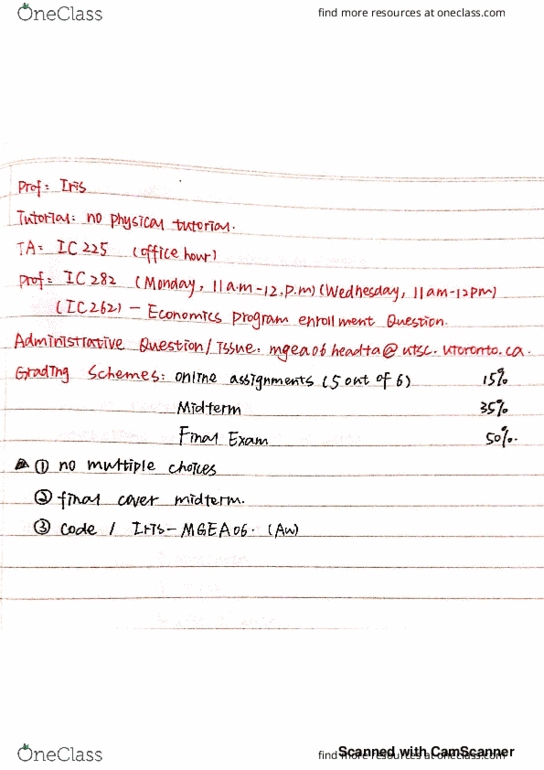 OneClass
find more resources at oneclass.com
Prof: Iris
Tutorial: no physical tutorial.
TA: IC225 (office hour)
Prof: IC282 (Monday, 11a.m-12.p.m) (Wednesday, 11am-12pm)
(IC262) - Economics program enrollment Question.
Administrative Question/issue: mgea06headta@utsc.utoronto.ca.
Grading Schemes: online assignments (5 out of 6) 15%
Midterm 35%
Final Exam 50%.
① no multiple choices
② final cover midterm.
③ code / Iris-MGEA06. (Aw)
OneClass
find more resources at oneclass.com
Scanned with CamScanner